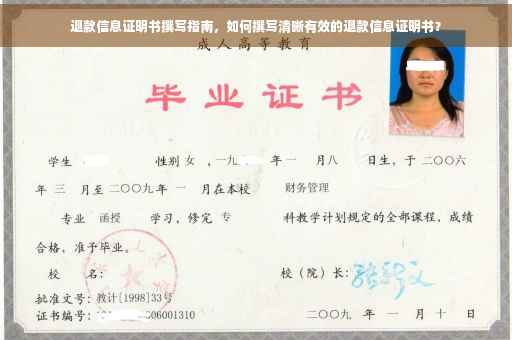 退款信息证明书撰写指南，如何撰写清晰有效的退款信息证明书？
成人高等教育
毕业证书
学生 性别 女 ，一九 年一 月八 日生，于二〇〇六
年 三 月至二〇〇九年 一 月在本校 财务管理
专业 函授 学习，修完 专 科教学计划规定的全部课程，成绩
合格，准予毕业。
校 名： 校（院）长：
批准文号：教计[1998]33号
证书编号： 06001310 二〇〇九 年 一 月 十 日